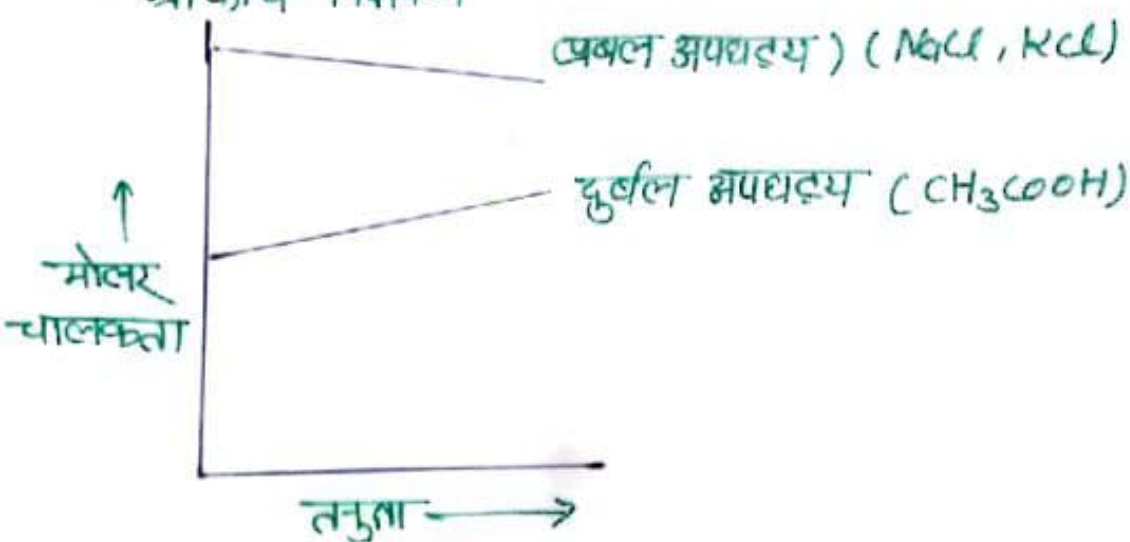 (प्रबल अपघट्य) (NaCl, KCl)
दुर्बल अपघट्य (CH₃COOH)
↑
मोलर
चालकता
तनुता →